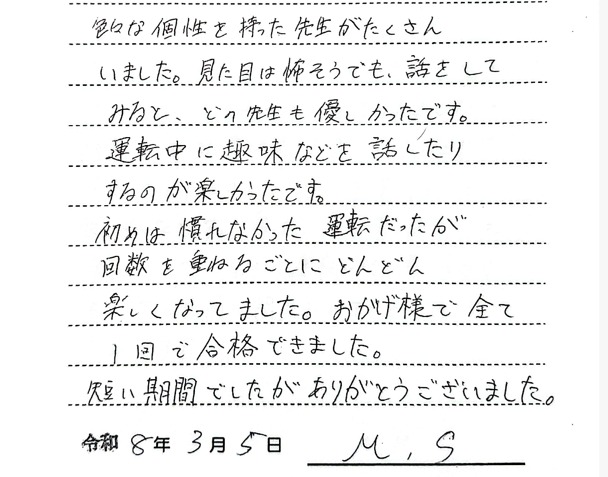 色々な個性を持った先生がたくさん
いました。見た目は怖そうでも、話をして
みると、どの先生も優しかったです。
運転中に趣味などを話したり
するのが楽しかったです。
初めは慣れなかった運転だったが
回数を重ねるごとにどんどん
楽しくなってました。おかげ様で全て
1回で合格できました。
短い期間でしたがありがとうございました。
令和8年3月5日 M.S